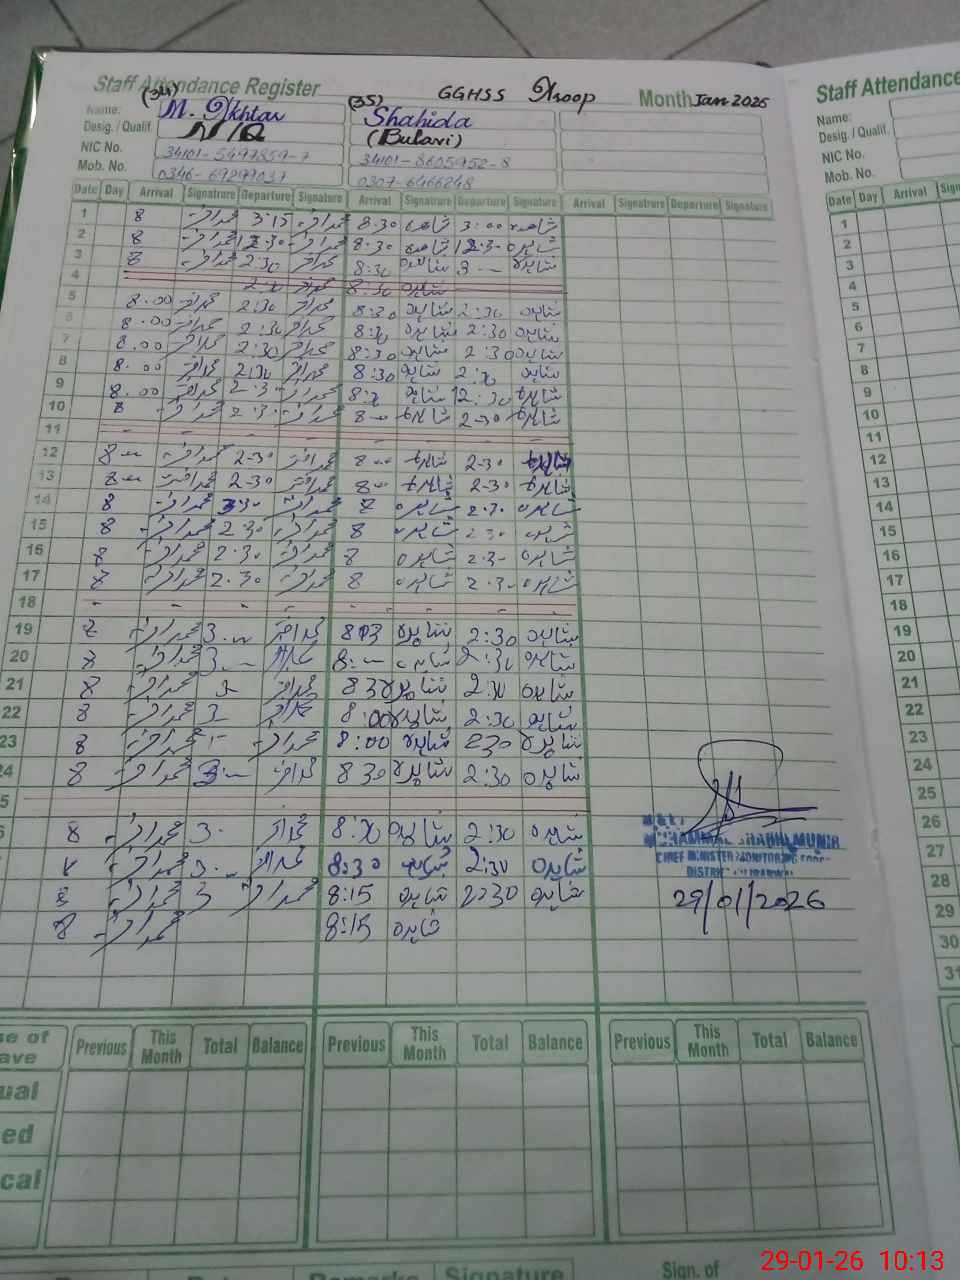 Staff Attendance Register GGHSS Aroop Month Jan 2026 Staff Attendance
(34) (35)
Name: M. Akhtar Shahida Name:
Desig. / Qualif. N/Q (Bulavi) Desig. / Qualif.
NIC No. 34101-5497859-7 34101-8605952-8 NIC No.
Mob. No. 0346-6929.037 0307-6466248 Mob. No.
Date Day Arrival Signatrure Departure Signature Arrival Signatrure Departure Signature Arrival Signatrure Departure Signature Date Day Arrival
1 8 محمد اختر 3:15 محمد اختر 8:30 شاہدہ 3:00 شاہدہ 1
2 8 محمد اختر 12:30 محمد اختر 8:30 شاہدہ 12:30 شاہدہ 2
3 8 محمد اختر 2:30 محمد اختر 8:30 شاہدہ 3 شاہدہ 3
4 محمد اختر 8:30 شاہدہ 4
5 8.00 محمد اختر 2:30 محمد اختر 8:30 شاہدہ 2:30 شاہدہ 5
6 8.00 محمد اختر 2:30 محمد اختر 8:30 شاہدہ 2:30 شاہدہ 6
7 8.00 محمد اختر 2:30 محمد اختر 8:30 شاہدہ 2:30 شاہدہ 7
8 8.00 محمد اختر 2:30 محمد اختر 8:30 شاہدہ 2:30 شاہدہ 8
9 8.00 محمد اختر 2:30 محمد اختر 8:30 شاہدہ 12:30 شاہدہ 9
10 8 محمد اختر 2-30 محمد اختر 8 شاہدہ 2-30 شاہدہ 10
11 - - - - - - - - 11
12 8 محمد اختر 2-30 محمد اختر 8 شاہدہ 2-30 شاہدہ 12
13 8 محمد اختر 2-30 محمد اختر 8 شاہدہ 2-30 شاہدہ 13
14 8 محمد اختر 3:30 محمد اختر 8 شاہدہ 2-30 شاہدہ 14
15 8 محمد اختر 2.30 محمد اختر 8 شاہدہ 2-30 شاہدہ 15
16 8 محمد اختر 2.30 محمد اختر 8 شاہدہ 2-30 شاہدہ 16
17 8 محمد اختر 2.30 محمد اختر 8 شاہدہ 2-30 شاہدہ 17
18 - - - - - - - - 18
19 8 محمد اختر 3 محمد اختر 8 شاہدہ 2:30 شاہدہ 19
20 8 محمد اختر 3 محمد اختر 8 شاہدہ 2:30 شاہدہ 20
21 8 محمد اختر 3 محمد اختر 8 30 شاہدہ 2:30 شاہدہ 21
22 8 محمد اختر 3 محمد اختر 8:00 شاہدہ 2:30 شاہدہ 22
23 8 محمد اختر محمد اختر 8:00 شاہدہ 230 شاہدہ 23
24 8 محمد اختر 3 محمد اختر 8 30 شاہدہ 2:30 شاہدہ 24
5 25
6 8 محمد اختر 3 محمد اختر 8:30 شاہدہ 2:30 شاہدہ 26
8 محمد اختر 3 محمد اختر 8:30 شاہدہ 2:30 شاہدہ 27
8 محمد اختر 3 محمد اختر 8:15 شاہدہ 2:30 شاہدہ 28
8 محمد اختر 8:15 شاہدہ 29
30
31
MUHAMMAD SHABIR MUNIR
CHIEF MINISTER MONITORING FORCE
DISTRICT GUJRANWALA
29/01/2026
se of ave Previous This Month Total Balance Previous This Month Total Balance Previous This Month Total Balance
ual
ed
cal
Remarks Signature Sign. of
29-01-26 10:13